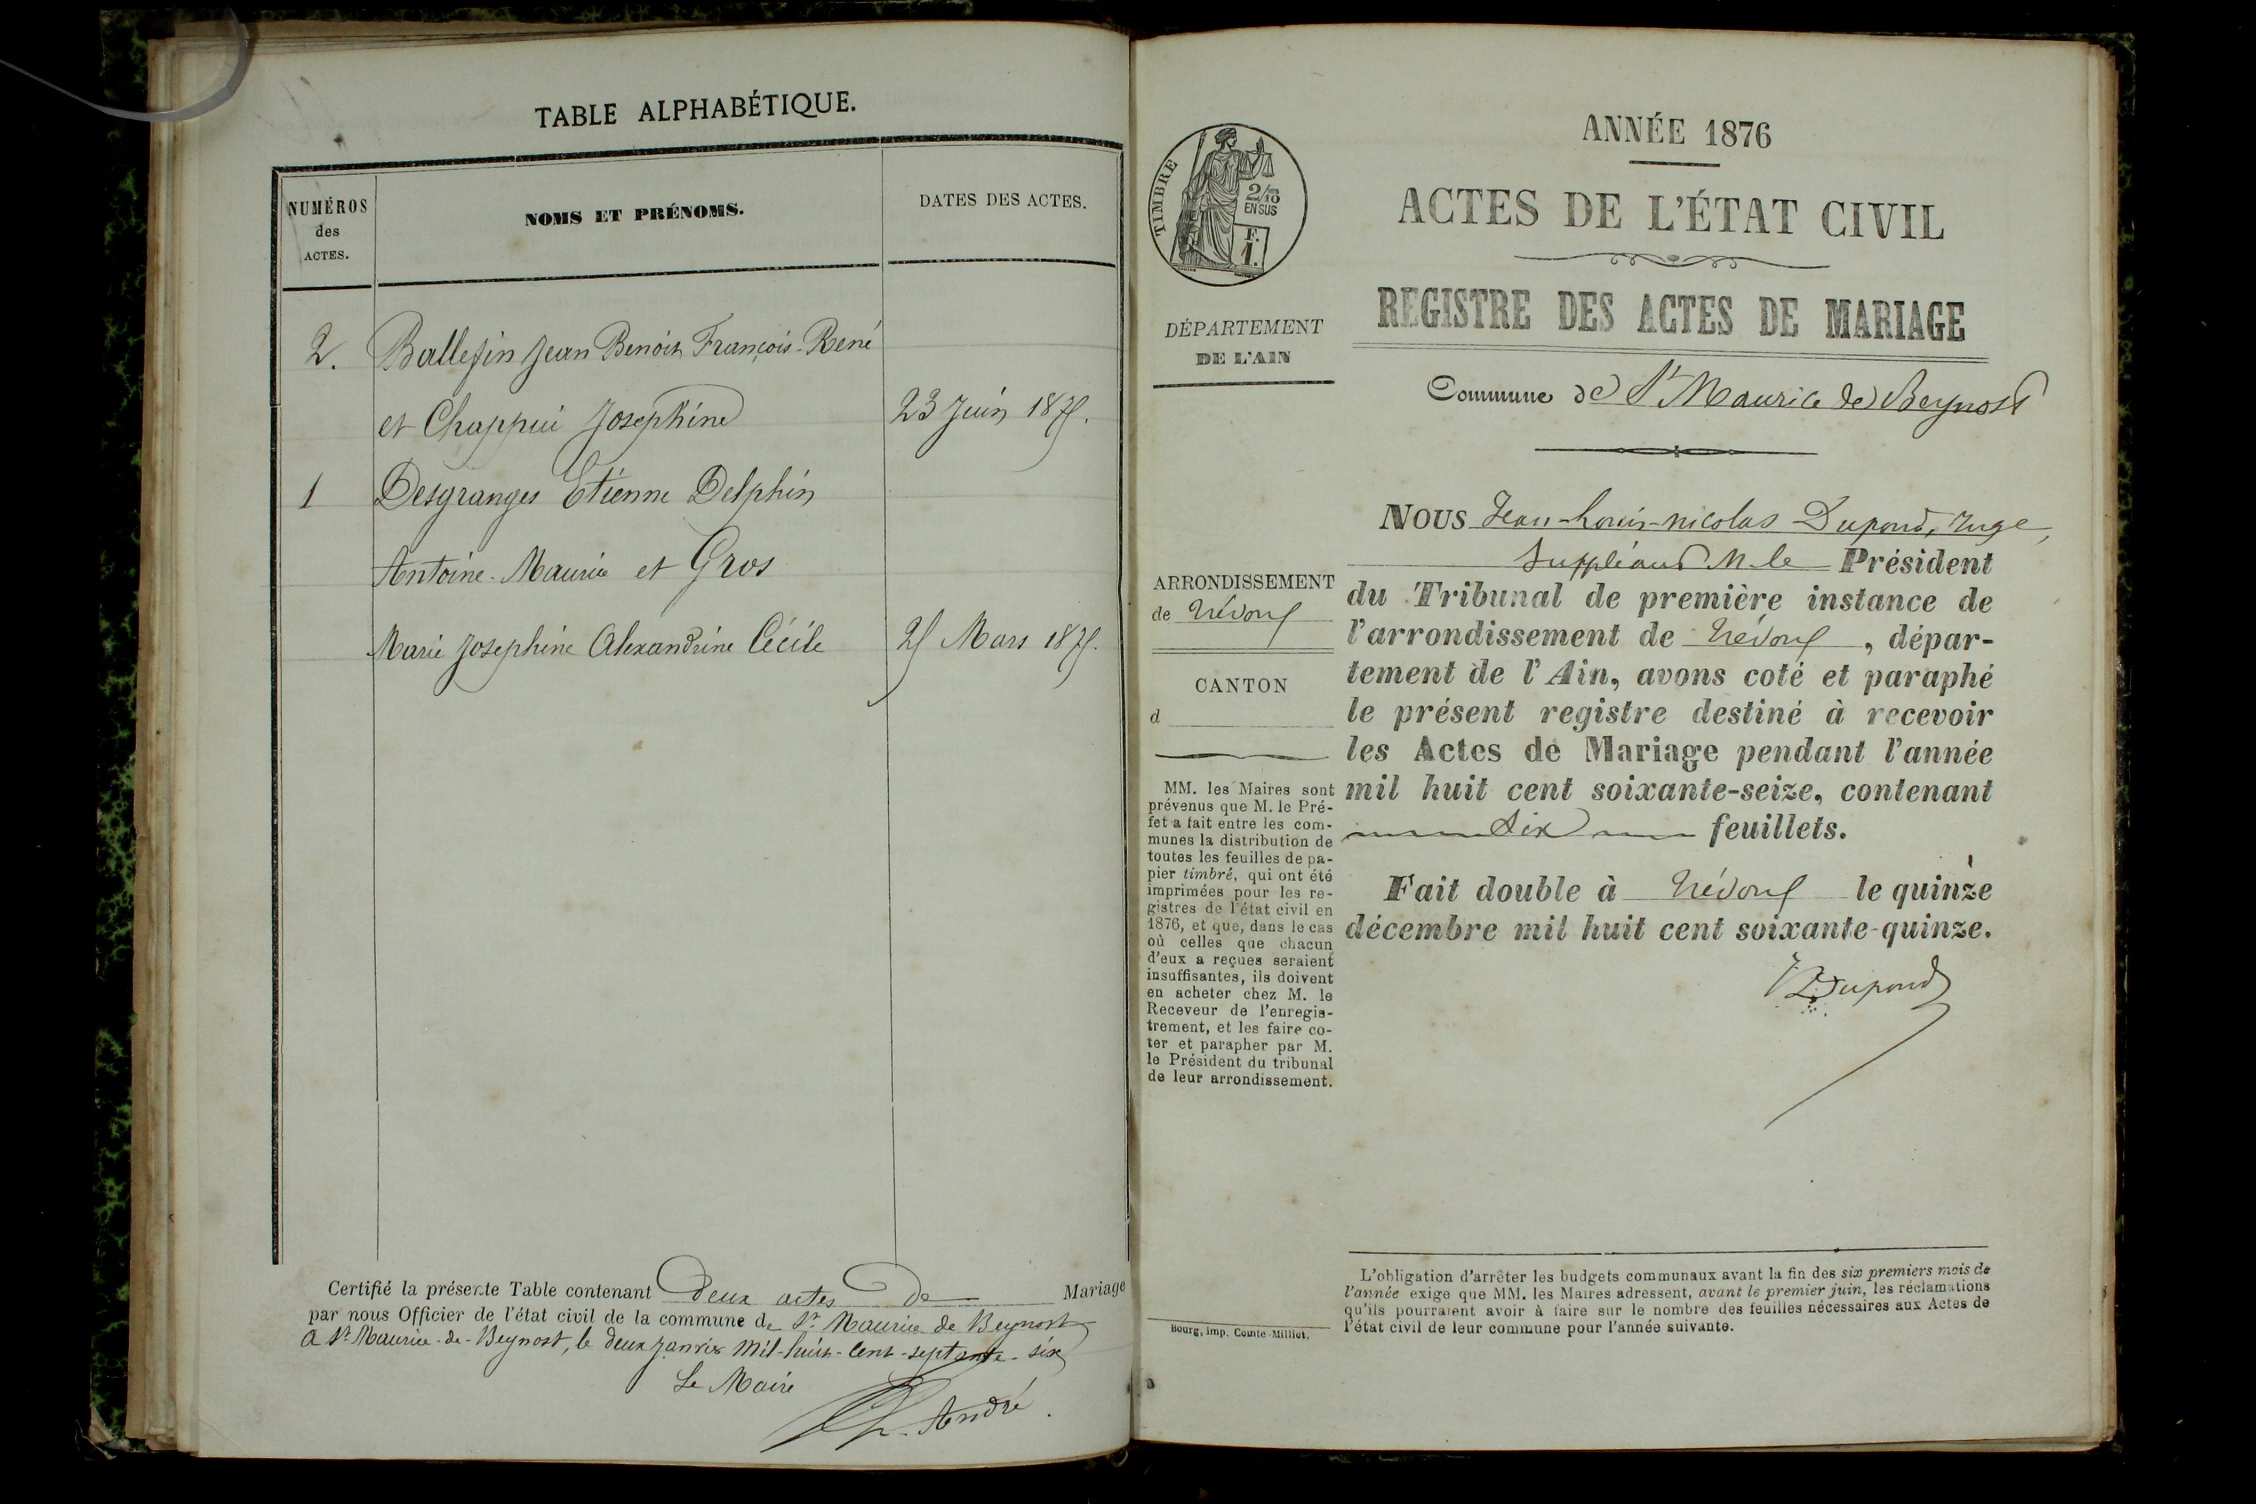 TABLE ALPHABÉTIQUE.
NUMÉROS
des
ACTES.
NOMS ET PRÉNOMS.
DATES DES ACTES.
2. Ballefin Jean Benoit François-René
et Chappui Josephine 23 Juin 1875.
1 Desgranges Etienne Delphin
Antoine-Maurice et Gros
Marie Josephine Alexandrine Cécile 25 Mars 1875.
Certifié la présente Table contenant deux actes de Mariage
par nous Officier de l'état civil de la commune de St Maurice de Beynost
a St Maurice-de-Beynost, le deux Janvier Mil-huit-cent-septante-six
Le Maire
André.
ANNÉE 1876
ACTES DE L'ÉTAT CIVIL
REGISTRE DES ACTES DE MARIAGE
Commune de St Maurice de Beynost
TIMBRE
2/10
EN SUS
F.
1.
DÉPARTEMENT
DE L'AIN
ARRONDISSEMENT
de Trévoux
CANTON
d
MM. les Maires sont
prévenus que M. le Pré-
fet a fait entre les com-
munes la distribution de
toutes les feuilles de pa-
pier timbré, qui ont été
imprimées pour les re-
gistres de l'état civil en
1876, et que, dans le cas
où celles que chacun
d'eux a reçues seraient
insuffisantes, ils doivent
en acheter chez M. le
Receveur de l'enregis-
trement, et les faire co-
ter et parapher par M.
le Président du tribunal
de leur arrondissement.
Bourg, imp. Comte-Milliet.
NOUS Jean-Louis-nicolas Dupond, Juge,
Suppléant M. le Président
du Tribunal de première instance de
l'arrondissement de Trévoux, dépar-
tement de l'Ain, avons coté et paraphé
le présent registre destiné à recevoir
les Actes de Mariage pendant l'année
mil huit cent soixante-seize, contenant
six feuillets.
Fait double à Trévoux le quinze
décembre mil huit cent soixante-quinze.
Dupond
L'obligation d'arrêter les budgets communaux avant la fin des six premiers mois de
l'année exige que MM. les Maires adressent, avant le premier juin, les réclamations
qu'ils pourraient avoir à faire sur le nombre des feuilles nécessaires aux Actes de
l'état civil de leur commune pour l'année suivante.